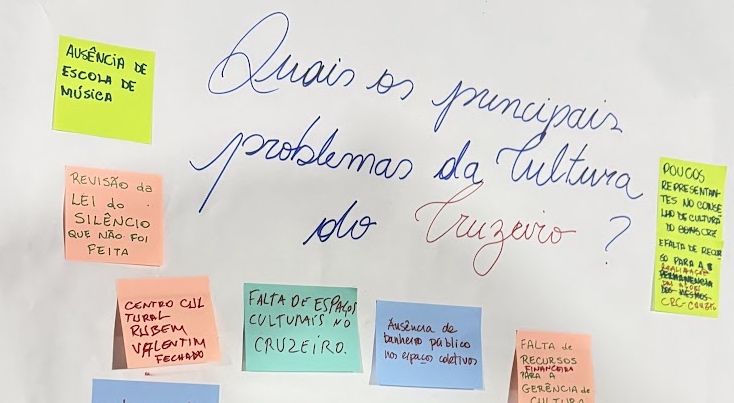 Quais os principais
problemas da Cultura
do Cruzeiro ?
AUSÊNCIA DE
ESCOLA DE
MÚSICA
REVISÃO da
LEI do
SILÊNCIO
QUE NÃO FOI
FEITA
CENTRO CUL
TURAL
RUBEM
VALENTIM
FECHADO
FALTA DE ESPAÇOS
CULTURAIS NO
CRUZEIRO.
Ausência de
banheiro público
nos espaços coletivos
FALTA de
RECURSOS
FINANCEIRA
PARA A
GERÊNCIA de
CULTURA
POUCOS
REPRESENTAN-
TES NO CONSE
LHO DE CULTURA
DO
E FALTA DE RECUR
SO PARA A
REALIZAÇÃO
PERMANENCIA
DOS MESMOS
CRC